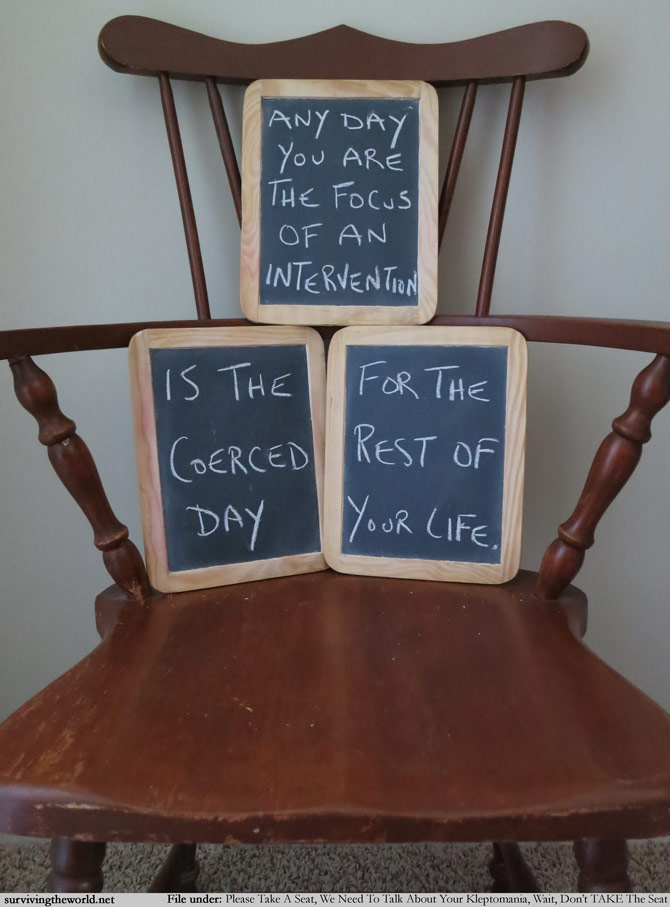 ANY DAY
YOU ARE
THE FOCUS
OF AN
INTERVENTION
IS THE
COERCED
DAY
FOR THE
REST OF
YOUR LIFE.
survivingtheworld.net File under: Please Take A Seat, We Need To Talk About Your Kleptomania, Wait, Don't TAKE The Seat